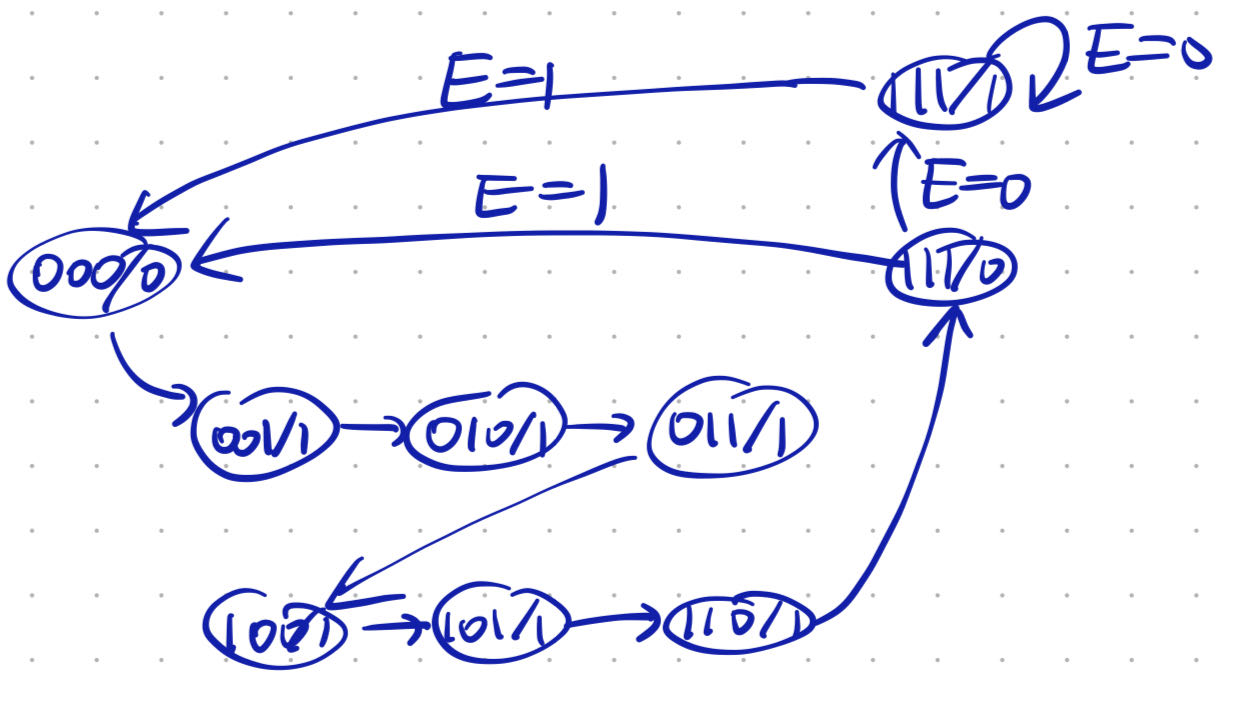 E=0
111/1
E=1
E=0
E=1
000/0
111/0
001/1
010/1
011/1
101/1
110/1